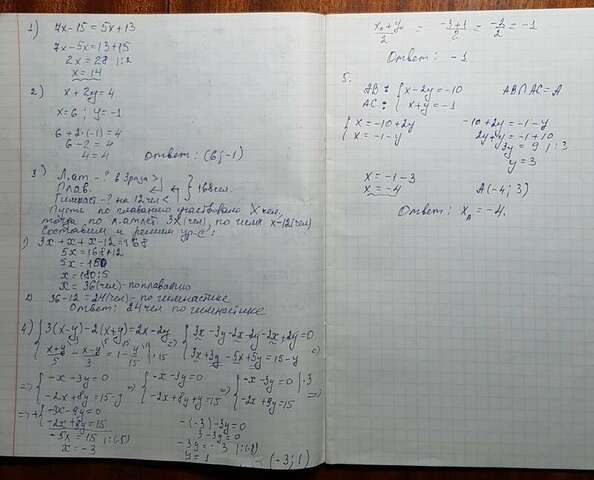 1) 7x-15=5x+13
7x-5x=13+15
2x=28 |:2
x=14
2) x+2y=4
x=6; y=-1
6+2·(-1)=4
6-2=4
4=4 Ответ: (6;-1)
3) Л.ат. -? в 3 раза >
Плав. 168 чел.
Гимнаст -? на 12 чел <
Пусть по плаванию участвовало x чел,
тогда по л.атлет. 3x (чел), по гимн x-12 (чел)
Составим и решим ур-е:
1) 3x+x+x-12=168
5x=168+12
5x=180
x=180:5
x=36 (чел) - по плаванию
2) 36-12=24 (чел) - по гимнастике
Ответ: 24 чел по гимнастике
4) { 3(x-y)-2(x+y)=2x-2y => { 3x-3y-2x-2y-2x+2y=0
x+y/5 - x-y/3 = 1 - y/15 |·15 3x+3y-5x+5y=15-y =>
=> { -x-3y=0 => { -x-3y=0 => { -x-3y=0 |·3
-2x+8y=15-y -2x+8y+y=15 -2x+9y=15 =>
=> + { -3x-9y=0
-2x+9y=15 -(-3)-3y=0
-5x=15 |:(-5) 3-3y=0
x=-3 -3y=-3 |:(-3)
y=1 (-3; 1)
x₀+y₀/2 = -3+1/2 = -2/2 = -1
Ответ: -1
5.
AB: { x-2y=-10 AB∩AC=A
AC: x+y=-1
{ x=-10+2y -10+2y=-1-y
x=-1-y 2y+y=-1+10
3y=9 |:3
y=3
x=-1-3
x=-4 A(-4; 3)
Ответ: x_A=-4.